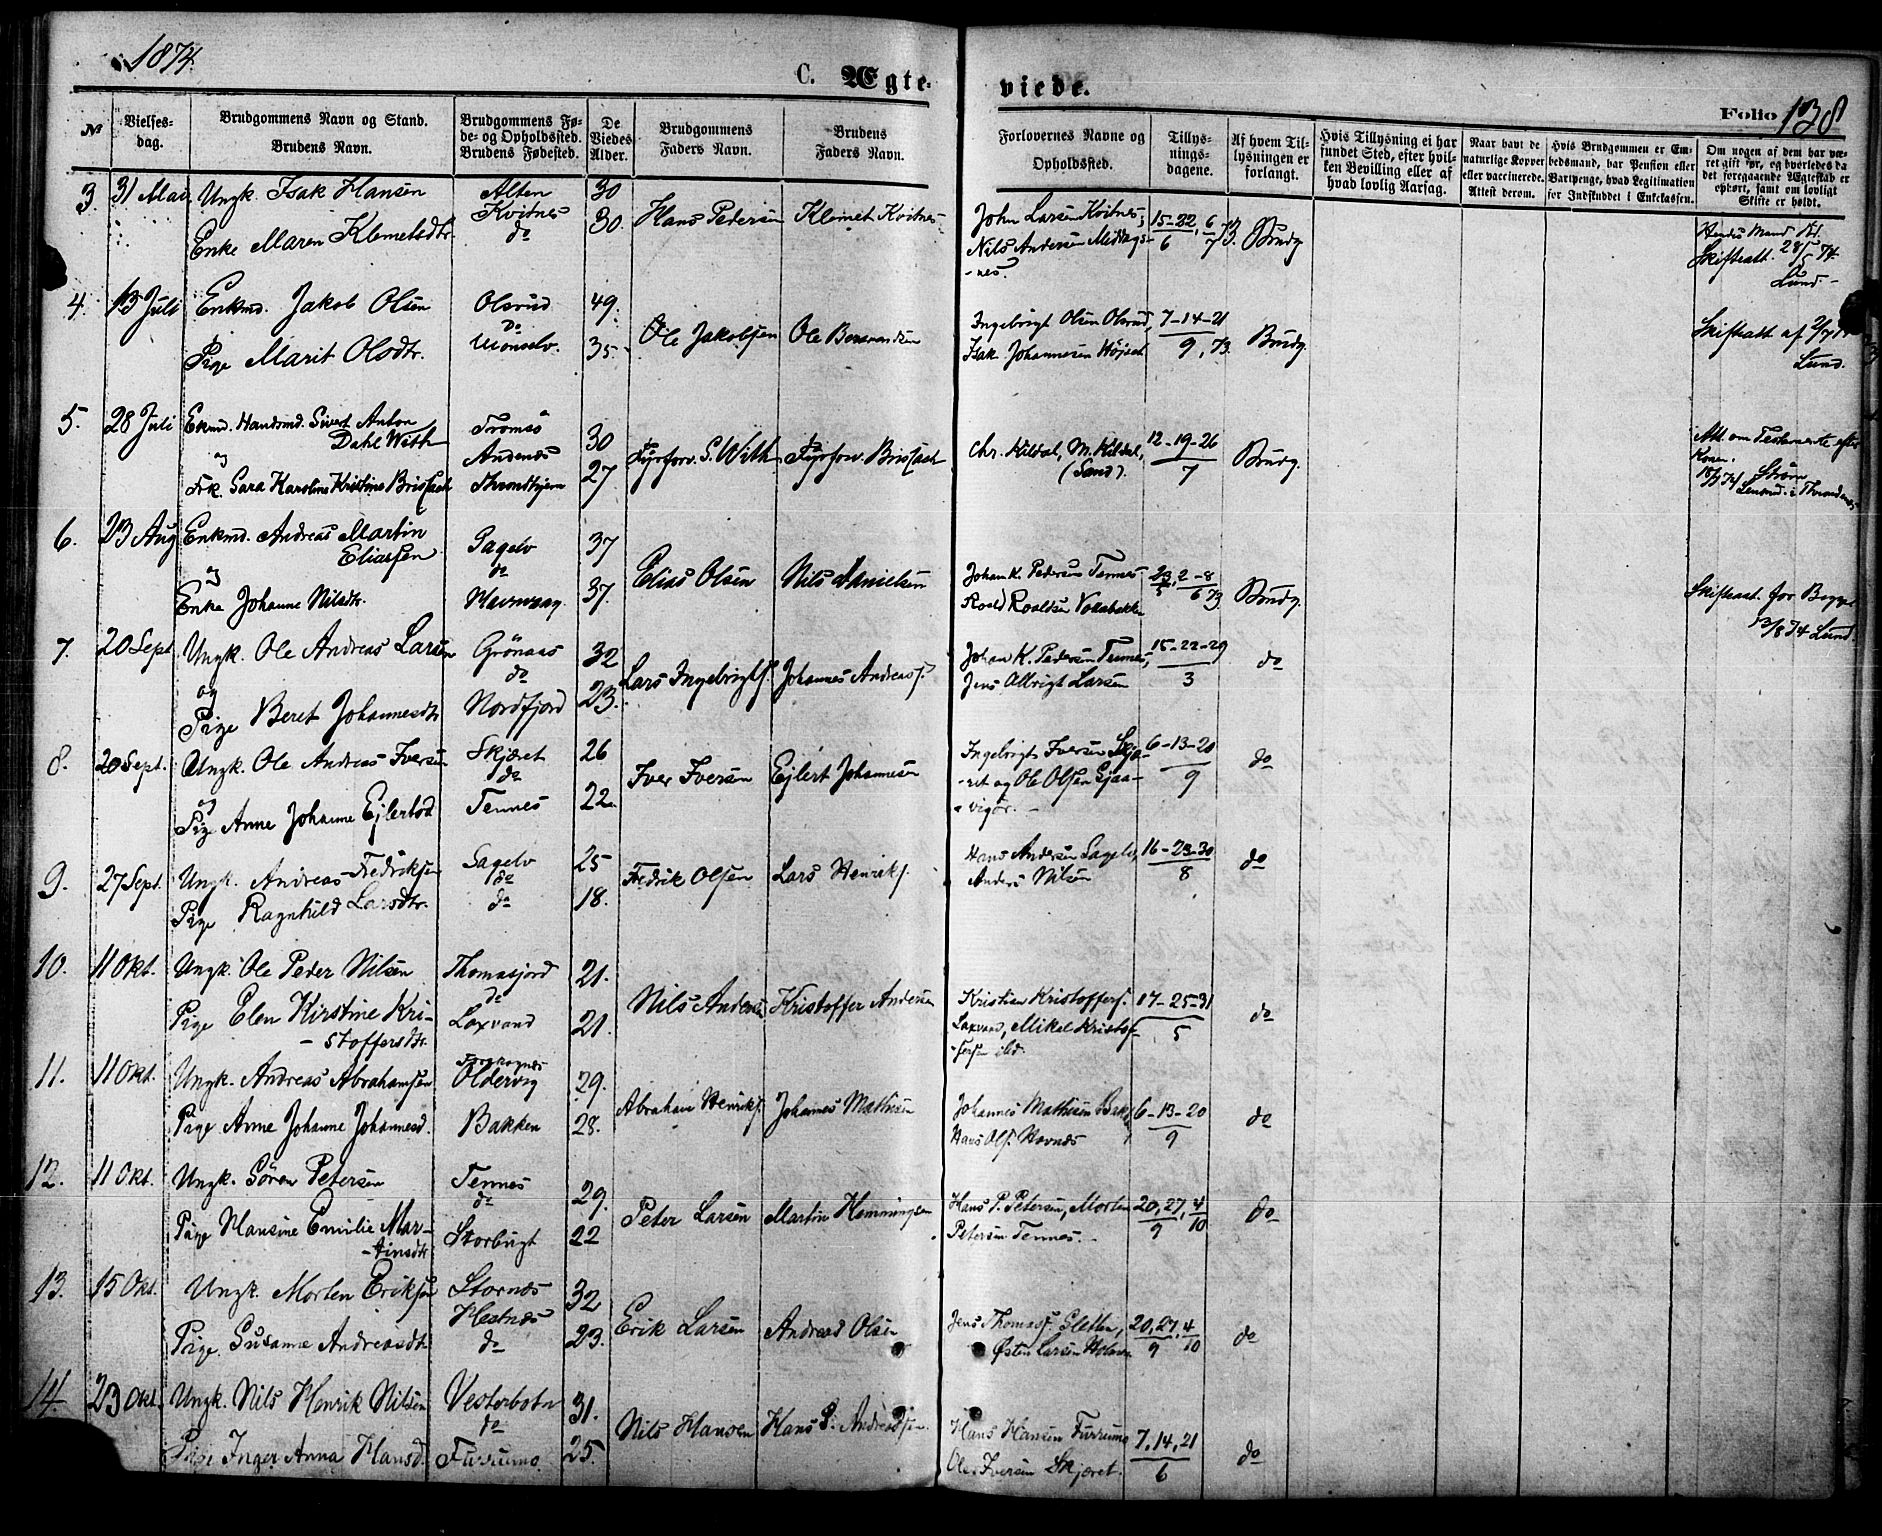 1874.
C. Ægte-
viede.
Folio 138
№
Vielses-
dag.
Brudgommens Navn og Stand.
Brudens Navn.
Brudgommens Fø-
de- og Opholdssted.
Brudens Fødested.
De
Viedes
Alder.
Brudgommens
Faders Navn.
Brudens
Faders Navn.
Forlovernes Navne og
Opholdssted.
Tillys-
nings-
dagene.
Af hvem Til-
lysningen er
forlangt.
Hvis Tillysning ei har
fundet Sted, efter hvil-
ken Bevilling eller af
hvad lovlig Aarsag.
Naar havt de
naturlige Kopper
eller vaccinerede.
Attest derom.
Hvis Brudgommen er Em-
bedsmand, har Pension eller
Vartpenge, hvad Legitimation
for Indskuddet i Enkekassen.
Om nogen af dem har væ-
ret gift før, og hvorledes da
det foregaaende Ægteskab er
ophørt, samt om lovligt
Skifte er holdt.
3. 31 Mai Ungk. Isak Hansen Alten 30
Kvitnes
Enke Maren Klemetsdtr. do 30. Hans Pedersen Klemet Kvitnes
John Larsen Kvitnes, 15-22, 6/7 73. Brudg.
Nils Andersen Middags- 6
-nes.
Hendes Mand
Skifteatt. 28/5 74
Lund.
4. 13 Juli Enkmd. Jakob Olsen Olsrud 49.
do
Pige Marit Olsdtr. 35. Ole Jakobsen Ole
Ingebrigt Olsen Olsrud, 7-14-21 Brudg.
Isak Johannesen 9, 73.
Skifteatt af
Lund.
5. 28 Juli Enkmd. Handsmd. Sivert Anton Tromsø 30
Dahl With Andenæs
og
Frk. Sara Karoline Kristine Throndhjem 27 Fyrforv. S. With Fyrforv.
Chr. Kildal, M. Kildal, 12-19-26 Brudg.
(Sand). 7
Att om Testamente efter
Konen.
Strøm
6. 23 Aug Enkmd. Andreas Martin Sagelv 37
Eliassen do
og
Enke Johanne Nilsdtr. 37. Elias Olsen Nils Danielsen
Johan K. Pedersen Tennes 2-8 Brudg.
Roald Roaldsen 6 73
Skifteatt. for Begge
13/8 74 Lund.
7. 20 Sept Ungk. Ole Andreas Larsen Grønaas 32
og do
Pige Beret Johannesdtr Nordfjord 23. Lars Ingebrigts. Johannes Andreass.
Johan K. Pedersen Tennes, 15-22-29 do
Jens Albrigt Larsen 3
8. 20 Sept. Ungk. Ole Andreas Iversen Skjæret 26
og do
Pige Anne Johanne Ejlertsd Tennes 22. Iver Iversen Ejlert Johannesen
Ingebrigt Iversen Skjæ- 6-13-20 do
-ret og Ole Olsen 9
9. 27 Sept. Ungk. Andreas Fredriksen Sagelv 25
do
Pige Ragnhild Larsdtr. do 18. Fredrik Olsen Lars Henriks.
Hans Andersen Sagelv, 16-23-30 do
Anders Nilsen 8
10. 11 Okt. Ungk. Ole Peder Nilsen Thomasjord 21.
do
Pige Elen Kirstine Kri- Laxvand 21. Nils Anders. Kristoffer Andersen
-stoffersdtr.
Kristian Kristoffers. 17-25-31 do
Laxvand, Mikal Kristof- 5
-fersen ibd.
11. 11 Okt. Ungk. Andreas Abrahamsen Oldervig 29.
Pige Anne Johanne Johannesd. Bakken 28. Abraham Henriks. Johannes Mathisen
Johannes Mathisen Bak. 6-13-20 do
Hans Ols. Havnæs 9
12. 11 Okt. Ungk. Søren Petersen Tennes 29.
do
Pige Hansine Emilie Mar- Storbugt 22 Peter Larsen Martin Hemmingsen
-tinsdtr
Hans P. Petersen, Morten 20, 27, 4 do
Petersen Tennes. 9 10
13. 15 Okt. Ungk. Morten Eriksen Stornæs 32
Hestnæs
Pige Susanne Andreasdtr do 23. Erik Larsen Andreas Olsen
Jens Thomass. Sletten, 20, 27, 4 do
Østen Larsen 9 10
14. 23 Okt. Ungk. Nils Henrik Nilsen Vesterbotn 31.
do
Pige Inger Anna Hansd. Furrumo 25. Nils Hansen Hans P. Andreassen
Hans Hansen Furrumo 7, 14, 21 do
Ole Iversen Skjæret. 6